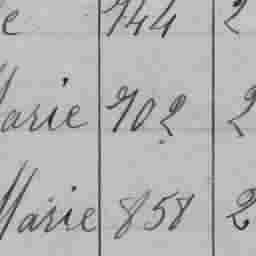 e 744 2
Marie 702 2
Marie 858 2